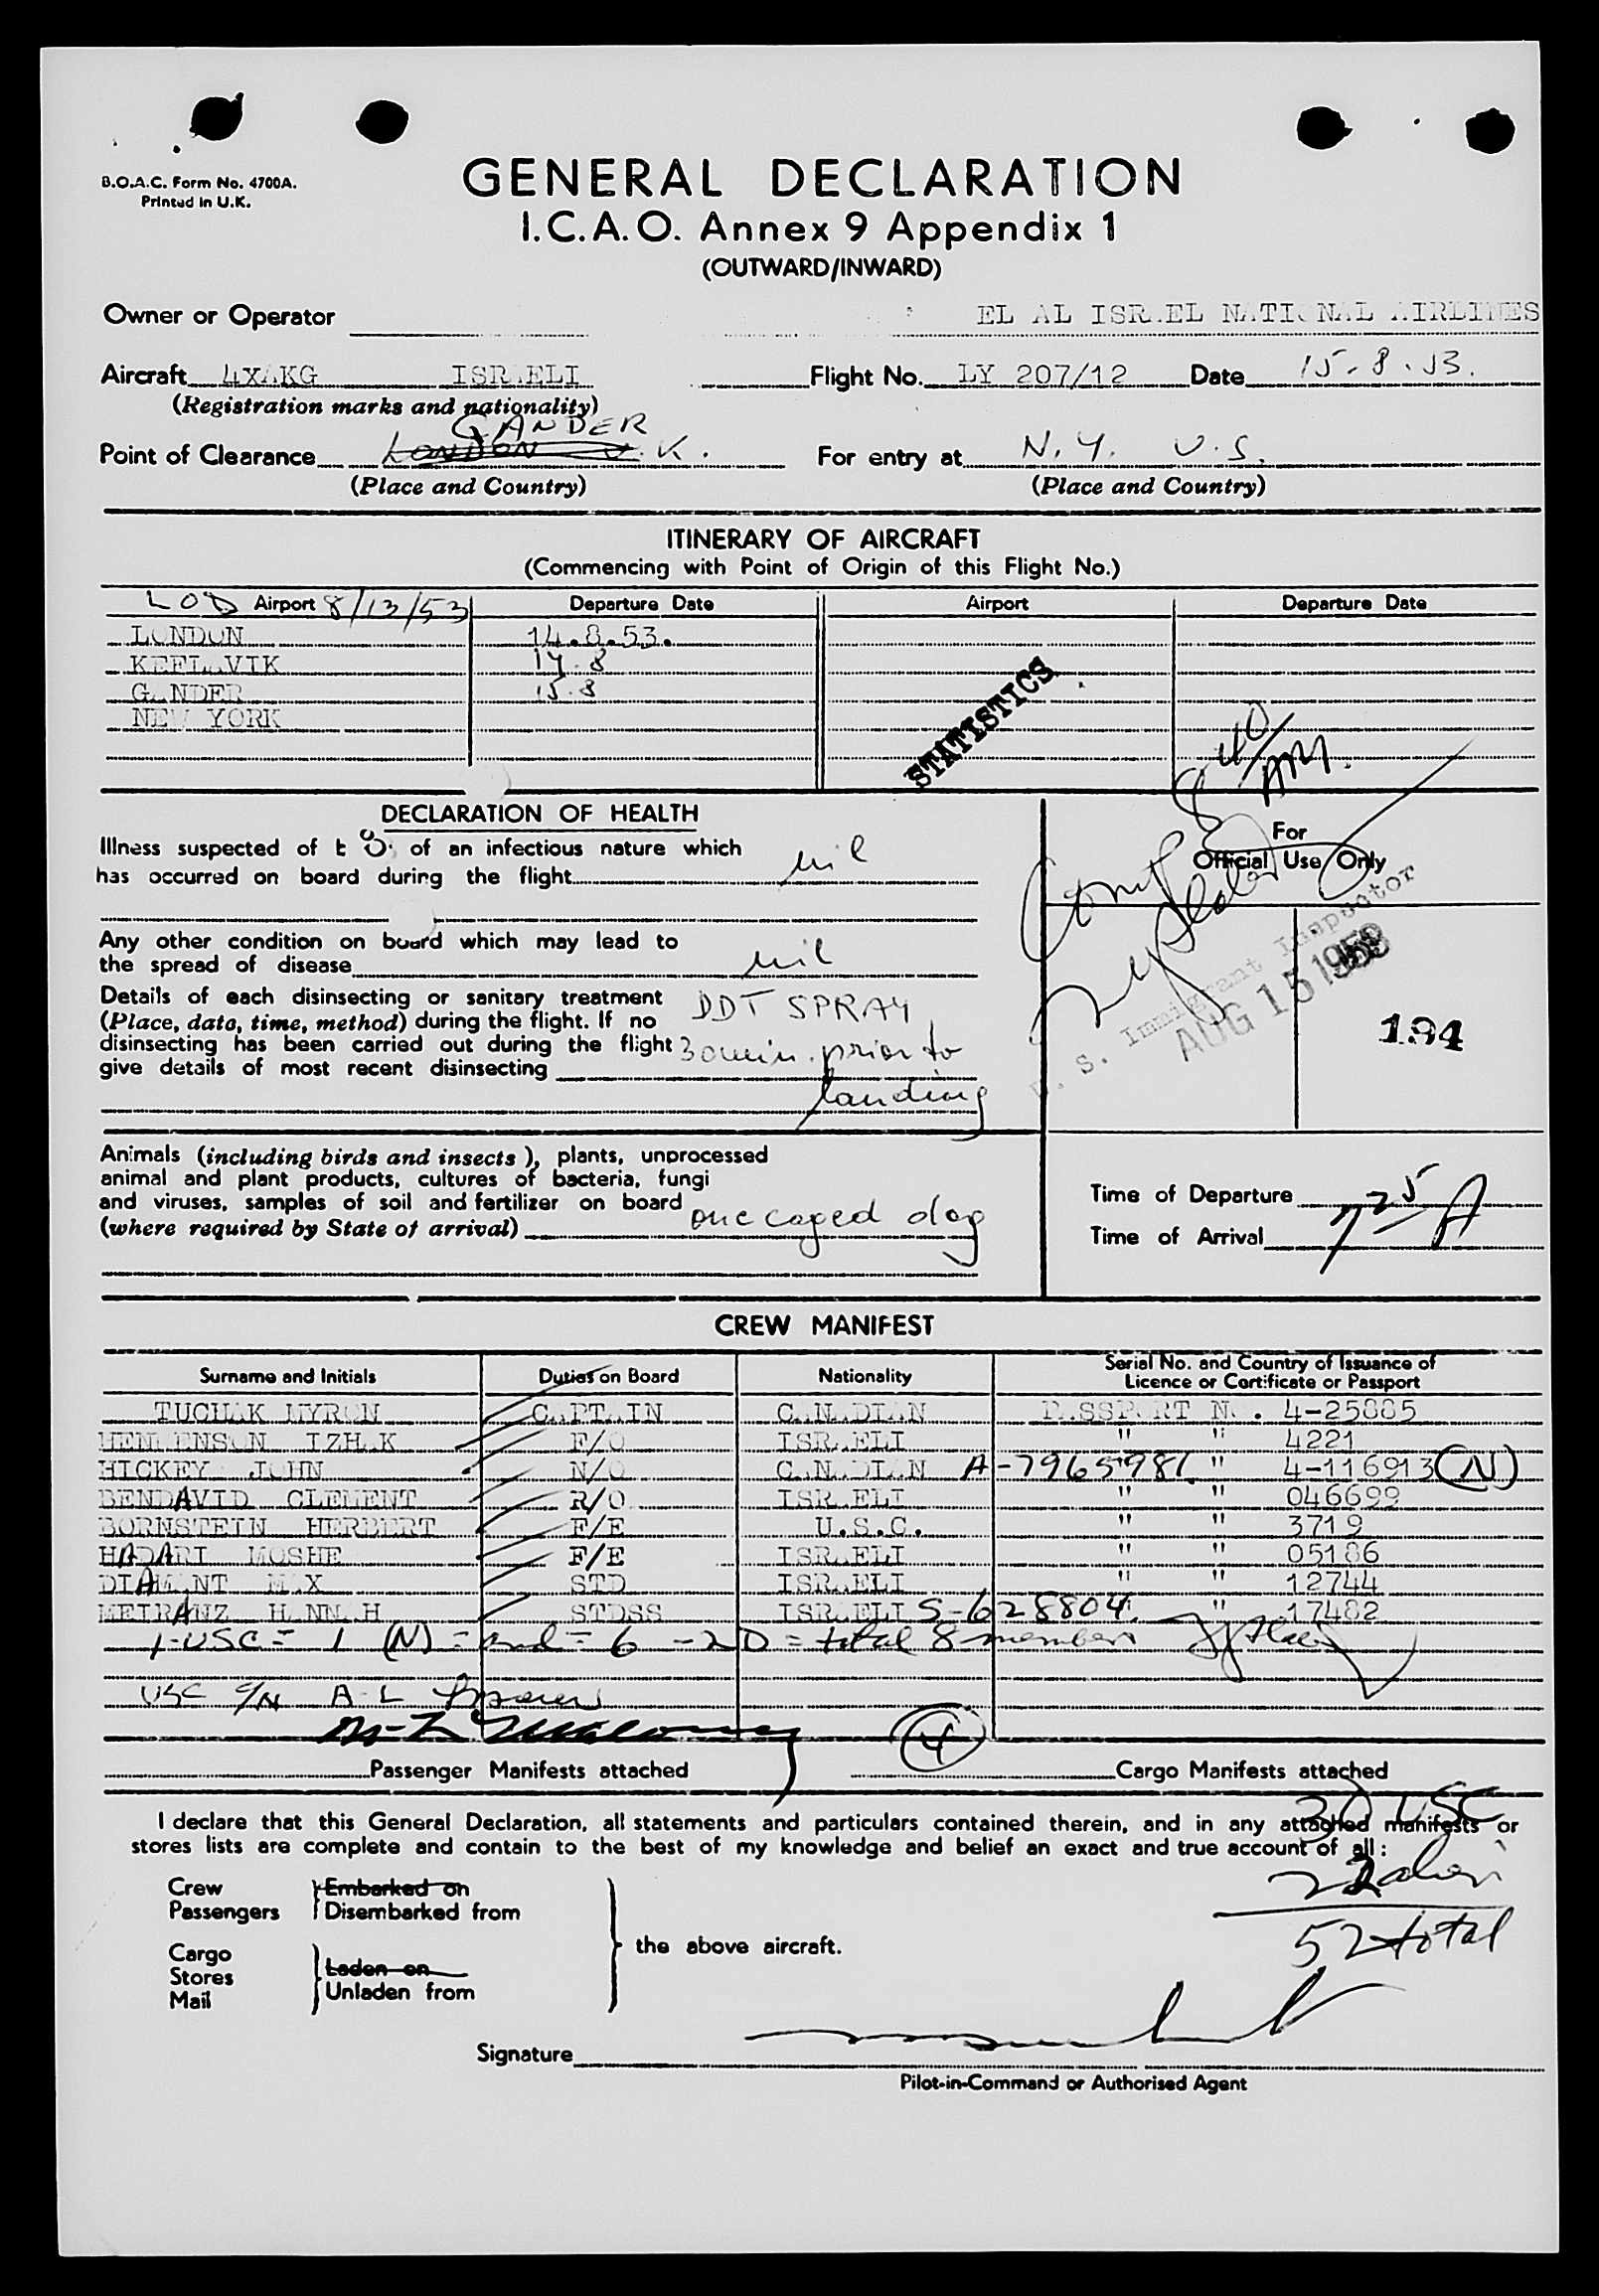 B.O.A.C. Form No. 4700A.
Printed in U.K.
GENERAL DECLARATION
I.C.A.O. Annex 9 Appendix 1
(OUTWARD/INWARD)
Owner or Operator EL AL ISRAEL NATIONAL AIRLINES
Aircraft 4XAKG ISRAELI Flight No. LY 207/12 Date 15.8.53.
(Registration marks and nationality)
GANDER
Point of Clearance LONDON U.K. For entry at N.Y. U.S.
(Place and Country) (Place and Country)
ITINERARY OF AIRCRAFT
(Commencing with Point of Origin of this Flight No.)
LOD Airport 8/13/53 Departure Date Airport Departure Date
LONDON 14.8.53.
KEFLAVIK 14.8
GANDER 15.8
NEW YORK
STATISTICS
8 40/AM.
DECLARATION OF HEALTH
For
Official Use Only
Illness suspected of of an infectious nature which
has occurred on board during the flight nil
Any other condition on board which may lead to
the spread of disease nil
U. S. Immigrant Inspector
AUG 15 1953
194
Details of each disinsecting or sanitary treatment DDT SPRAY
(Place, date, time, method) during the flight. If no
disinsecting has been carried out during the flight 30 min. prior to
give details of most recent disinsecting landing
Animals (including birds and insects), plants, unprocessed
animal and plant products, cultures of bacteria, fungi
and viruses, samples of soil and fertilizer on board
(where required by State of arrival) one caged dog
Time of Departure
Time of Arrival 7 25 A
CREW MANIFEST
Surname and Initials Duties on Board Nationality Serial No. and Country of Issuance of
Licence or Certificate or Passport
TUCHAK MYRON CAPTAIN CANADIAN PASSPORT NO. 4-25885
IZHAK F/O ISRAELI " " 4221
HICKEY JOHN N/O CANADIAN A-7965981 " 4-116913 (N)
BENDAVID CLEMENT R/O ISRAELI " " 046699
BORNSTEIN HERBERT F/E U.S.C. " " 3719
HADARI MOSHE F/E ISRAELI " " 05186
DIAMANT MAX STD ISRAELI " " 12744
MEIRANZ HANNAH STDSS ISRAELI S-628804 " 17482
1-USC = 1 (N) = and = 6 - 2 D = total 8 members
USC A-L
4
Passenger Manifests attached Cargo Manifests attached
30 USC
I declare that this General Declaration, all statements and particulars contained therein, and in any attached manifests or
stores lists are complete and contain to the best of my knowledge and belief an exact and true account of all:
22 alien
52 total
Crew Embarked on
Passengers Disembarked from
the above aircraft.
Cargo
Stores Laden on
Mail Unladen from
Signature
Pilot-in-Command or Authorised Agent